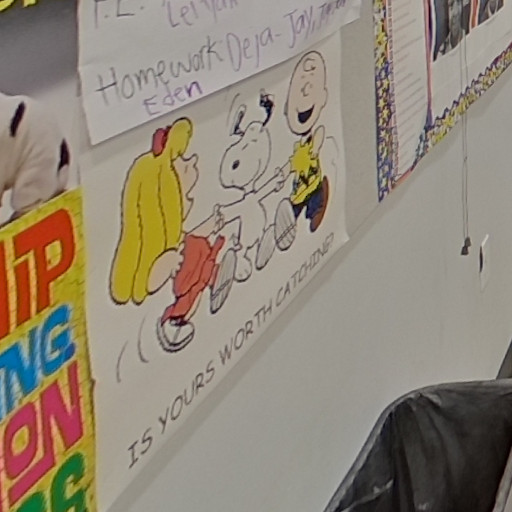 T.L. Leiyah
Homework Deja-Jay,
Eden
IS YOURS WORTH CATCHING?
IP
ING
ON